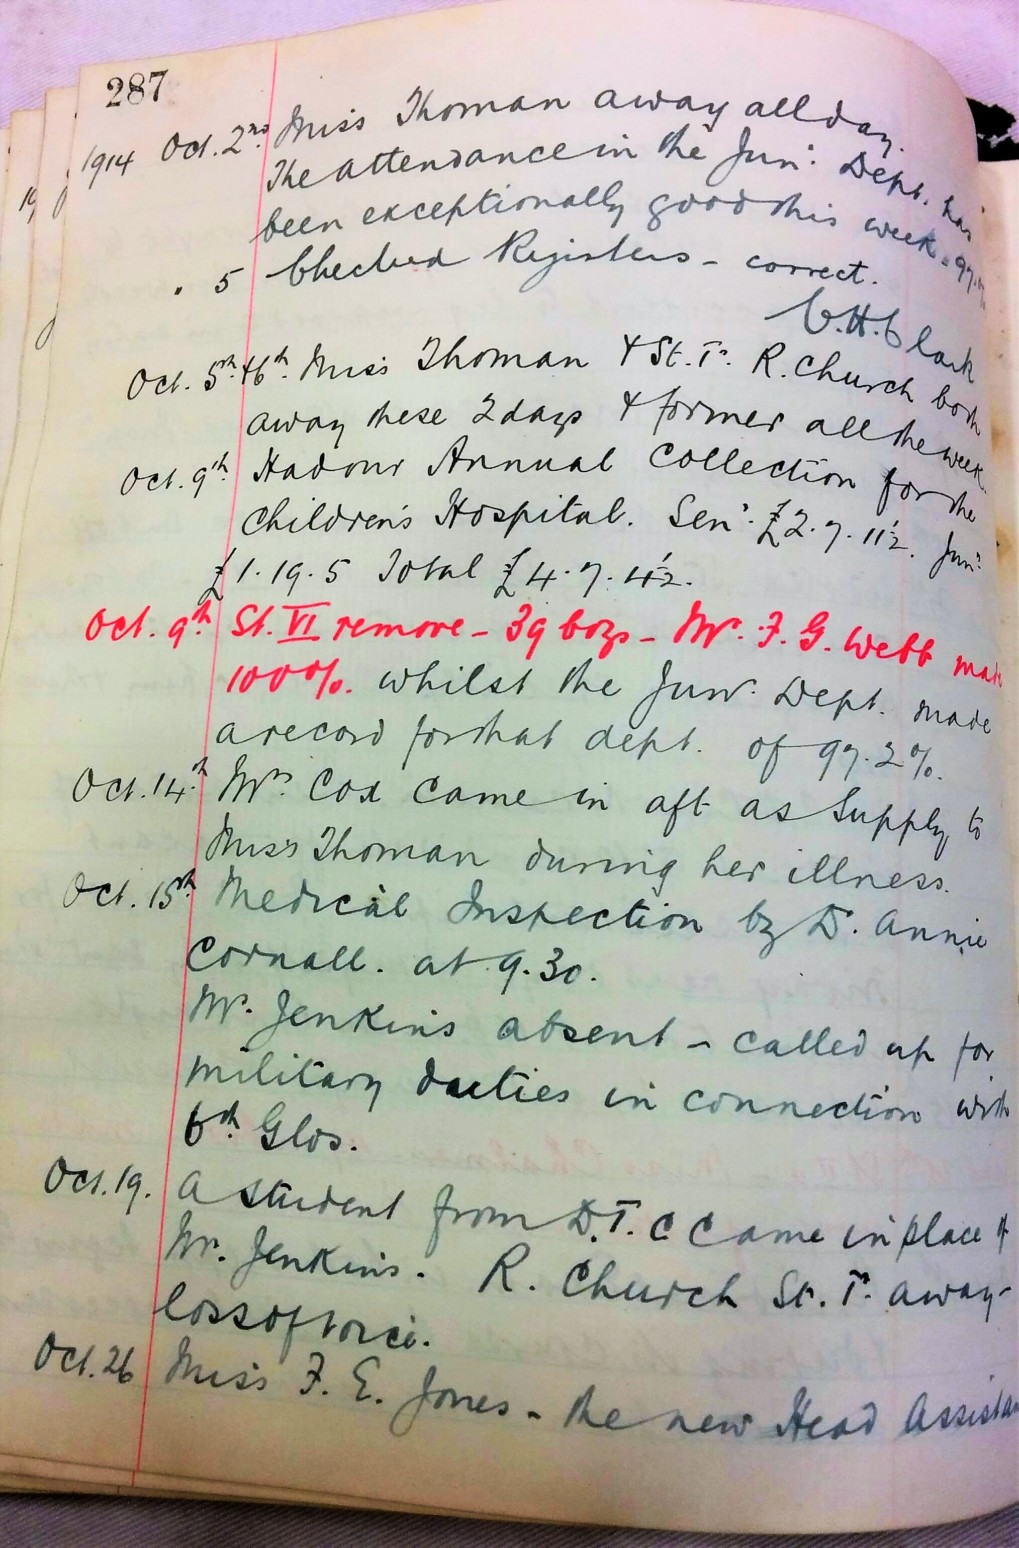 287
1914 Oct. 2nd Miss Thoman away all day.
The attendance in the Junr. Dept. has
been exceptionally good this week - 97.%
" 5 Checked Registers - correct.
C.H.Clark
Oct. 5th & 6th. Miss Thoman & St. Tr. R. Church both
away these 2 days & former all the week.
Oct. 9th Had our Annual Collection for the
Children's Hospital. Senr. £2.7.11½. Junr.
£1.19.5 Total £4.7.4½.
Oct. 9th. St. VI remove - 39 boys - Mr. F. G. Webb made
100%. whilst the Junr. Dept. made
a record for that dept. of 97.2%.
Oct. 14.th Mrs. Cox came in aft as Supply to
Miss Thoman during her illness.
Oct. 15th Medical Inspection by Dr. Annie
Cornall. at 9.30.
Mr. Jenkins absent - called up for
military duties in connection with
6th Glos.
Oct. 19. A student from D.T.C came in place of
Mr. Jenkins. R. Church St. Tr. away -
loss of voice.
Oct. 26 Miss F. E. Jones - the new Head Assistan